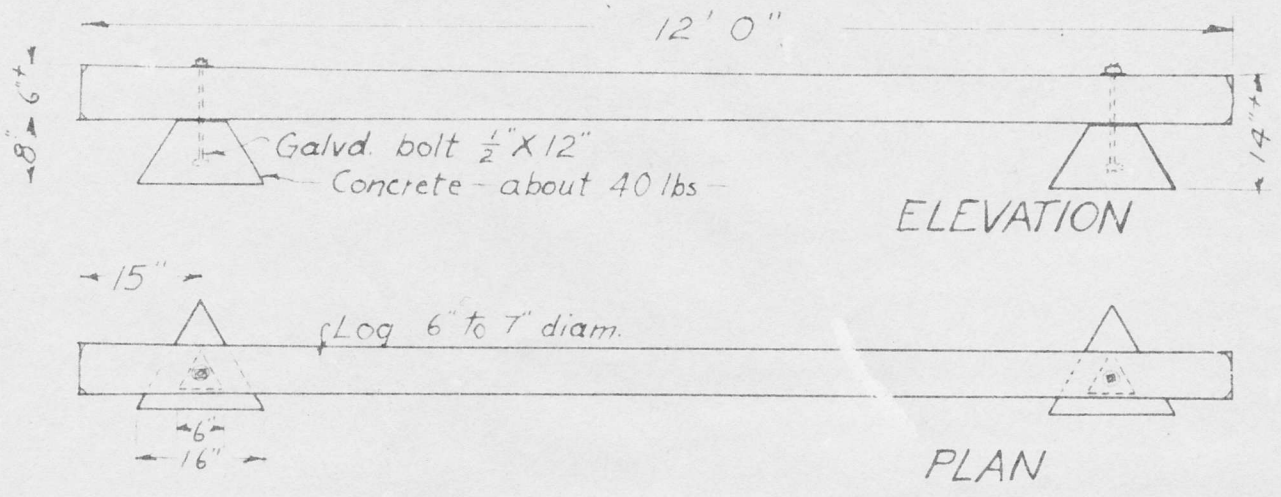 12' 0"
6"+
8"
14"+
Galvd. bolt ½" X 12"
Concrete - about 40 lbs -
ELEVATION
15"
Log 6" to 7" diam.
6"
16"
PLAN